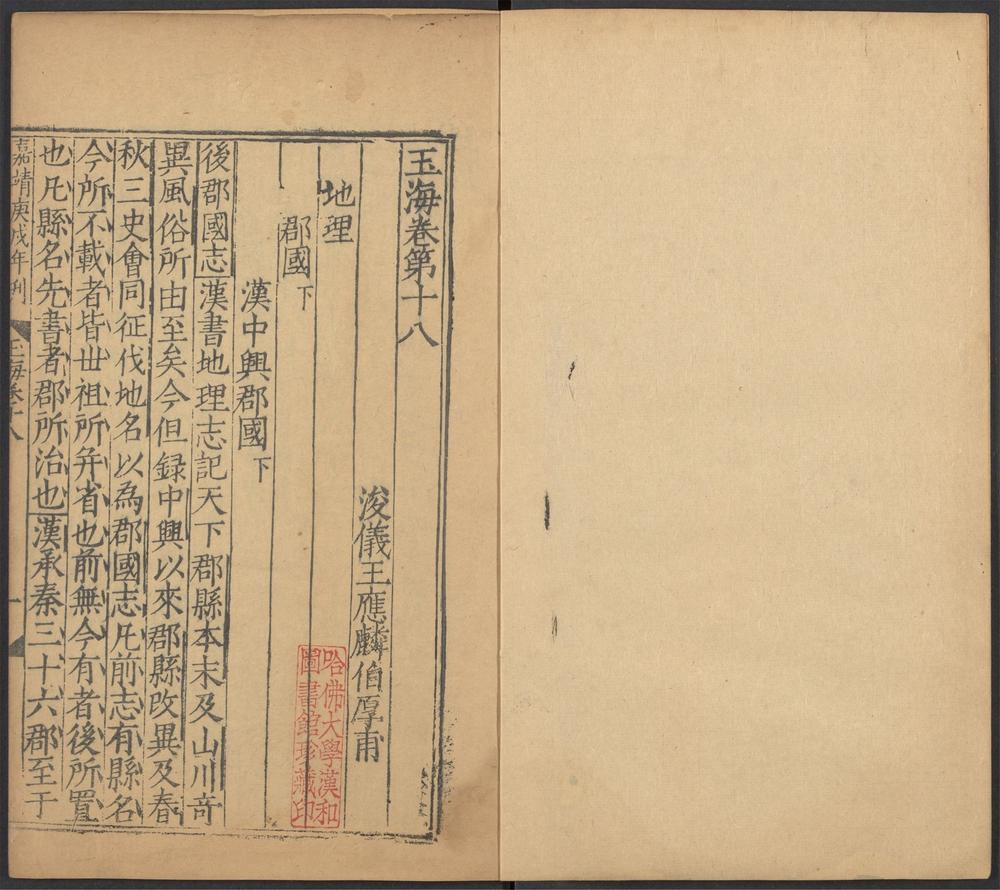 玉海卷第十八
浚儀王應麟伯厚甫
地理
郡國下
漢中興郡國下
後郡國志漢書地理志記天下郡縣本末及山川奇
異風俗所由至矣今但録中興以來郡縣改異及春
秋三史會同征伐地名以為郡國志凡前志有縣名
今所不載者皆世祖所并省也前無今有者後所置
也凡縣名先書者郡所治也漢承秦三十六郡至于
嘉靖庚戌年刊
玉海卷十八
一
哈佛大學漢和
圖書館珍藏印